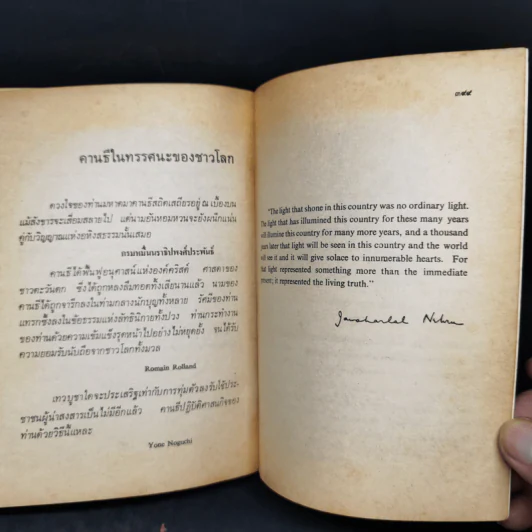 คานธีในทรรศนะของชาวโลก
ดวงใจของท่านมหาตมาคานธีสถิตเสถียรอยู่ ณ เบื้องบน
แม้สังขารจะเสื่อมสลายไป แต่นามอันหอมหวนจะยังผนึกแน่น
คู่กับวิญญาณแห่งอหิงสธรรมนั้นเสมอ
กรมหมื่นนราธิปพงศ์ประพันธ์
คานธีได้ฟื้นฟูอนุศาสน์แห่งองค์คริสต์ ศาสดาของ
ชาวตะวันตก ซึ่งได้ถูกหลงลืมทอดทิ้งเสียนานแล้ว นามของ
คานธีได้ถูกจารึกลงในท่ามกลางนักบุญทั้งหลาย รัศมีของท่าน
แทรกซึ้งลงในข้อธรรมแห่งลัทธินิกายทั้งปวง ท่านกระทำงาน
ของท่านด้วยความเข้มแข็งรุดหน้าไปอย่างไม่หยุดยั้ง จนได้รับ
ความยอมรับนับถือจากชาวโลกทั้งมวล
Romain Rolland
เทวบูชาใดจะประเสริฐเท่ากับการทุ่มตัวลงรับใช้ประ-
ชาชนผู้น่าสงสารเป็นไม่มีอีกแล้ว คานธีปฏิบัติศาสนกิจของ
ท่านด้วยวิธีนี้แหละ
Yone Noguchi
๓๙๙
"The light that shone in this country was no ordinary light.
The light that has illumined this country for these many years
will illumine this country for many more years, and a thousand
years later that light will be seen in this country and the world
will see it and it will give solace to innumerable hearts. For
that light represented something more than the immediate
present; it represented the living truth."
Jawaharlal Nehru